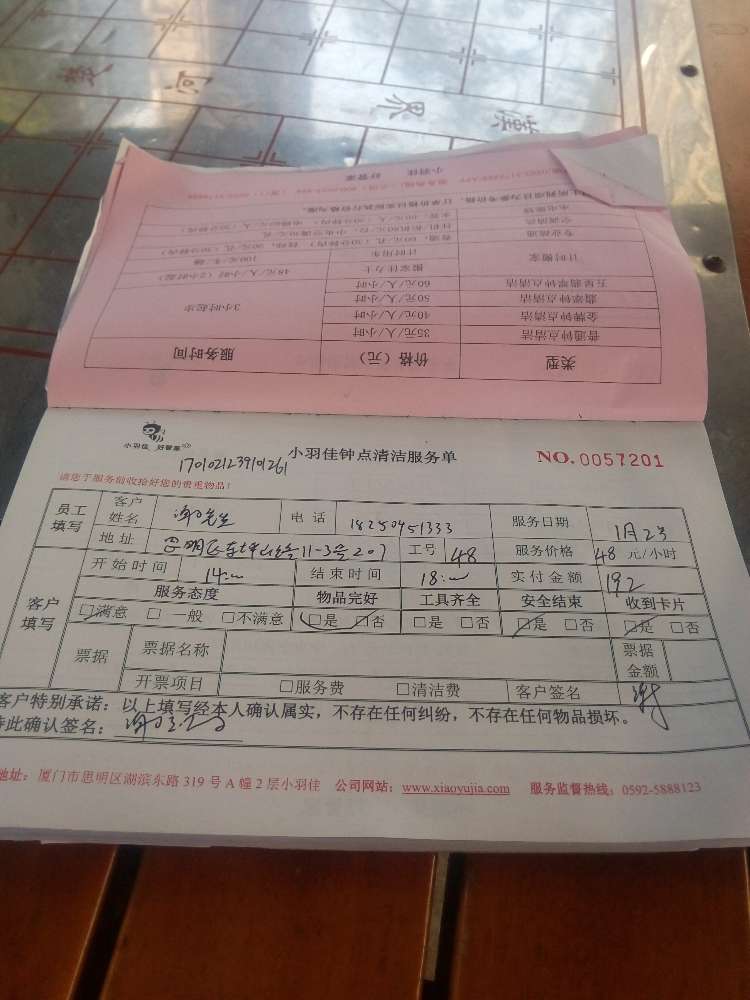 河
界
漢
小羽佳 好管家
上所列项目为参考价格，订单价格以实际执行价格为准
水电维修
空调清洗
专业清通
计时搬家 计时用车 100元/车/趟
搬家佳力士 48元/人/小时（2小时起）
五星翡翠钟点清洁 60元/人/小时
翡翠钟点清洁 50元/人/小时
金牌钟点清洁 40元/人/小时 3小时起步
普通钟点清洁 35元/人/小时
类型 价格（元） 服务时间
小羽佳 好管家
1701021239101261 小羽佳钟点清洁服务单 NO.0057201
请您于服务前收拾好您的贵重物品！
员工填写 客户姓名 先生 电话 18250451333 服务日期 1月23
地址 思明区 11-3号207 工号 48 服务价格 48 元/小时
客户填写 开始时间 14:00 结束时间 18:00 实付金额 192
服务态度 物品完好 工具齐全 安全结束 收到卡片
□满意 □一般 □不满意 □是 □否 □是 □否 □是 □否 □是 □否
票据 票据名称 票据金额
开票项目 □服务费 □清洁费 客户签名
客户特别承诺：以上填写经本人确认属实，不存在任何纠纷，不存在任何物品损坏。
特此确认签名：
地址：厦门市思明区湖滨东路319号A幢2层小羽佳 公司网站：www.xiaoyujia.com 服务监督热线：0592-5888123